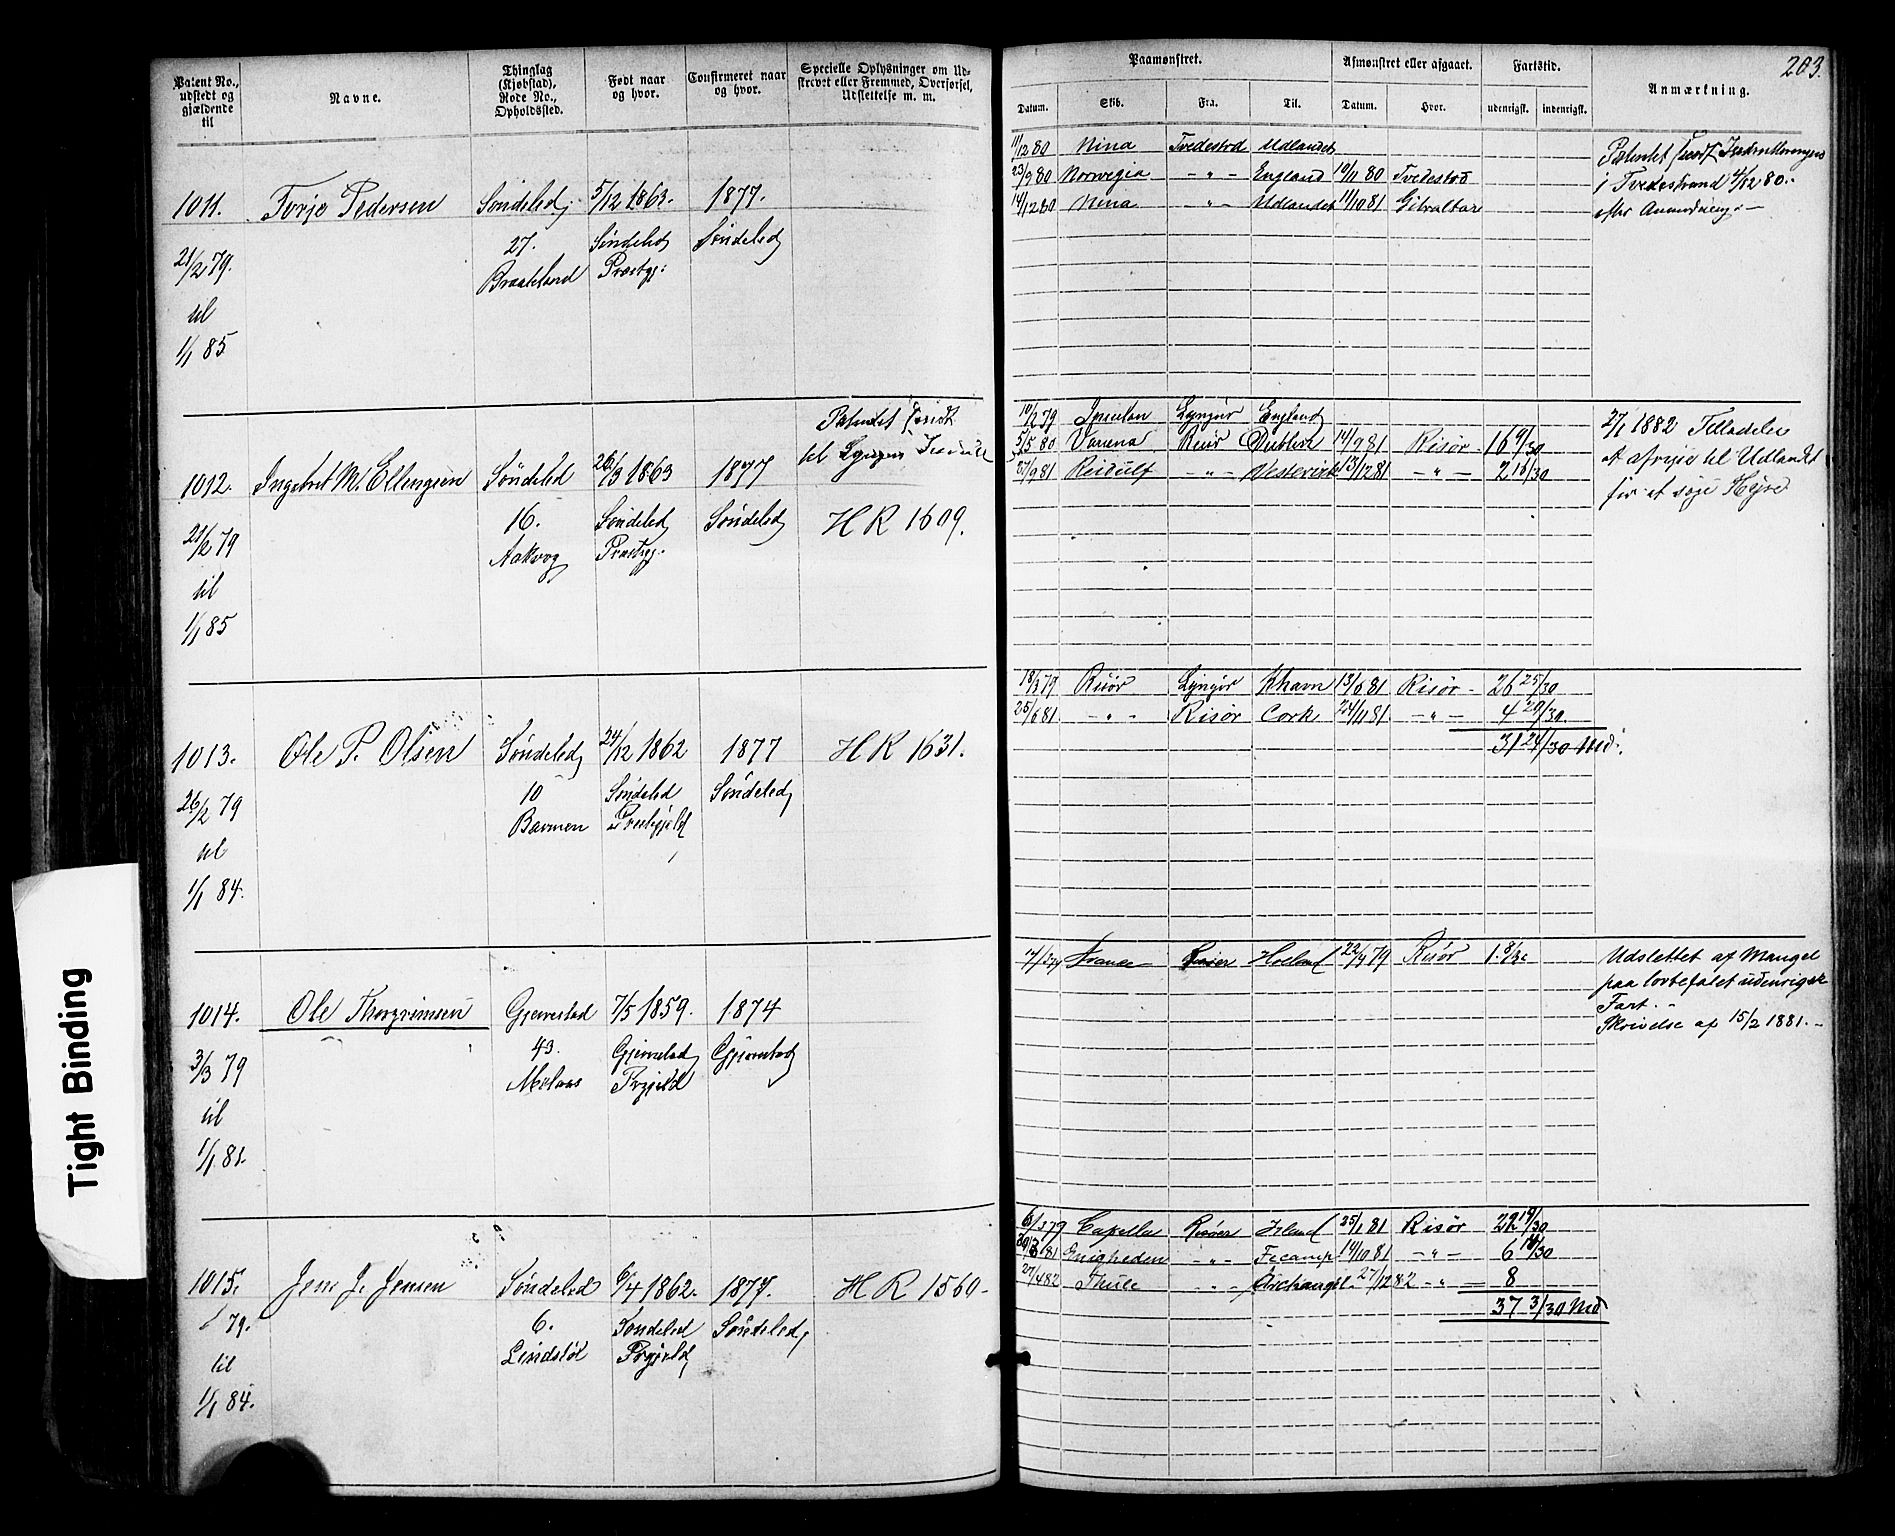 203.
Patent No., udstedt og gjældende til
Navne.
Thinglag (Kjøbstad), Rode No., Opholdssted.
Født naar og hvor.
Confirmeret naar og hvor.
Specielle Oplysninger om Udskrevet eller Fremmed, Overførsel, Udslettelse m. m.
Paamønstret.
Afmønstret eller afgaaet.
Fartstid.
Anmærkning.
Datum. Skib. Fra. Til. Datum. Hvor. udenrigsk. indenrigsk.
11/12 80 Nina Tvedestrd Udlandet
23/9 80 Norwegia -"- England 10/11 80 Tvedestrd
14/12 80 Nina -"- Udlandet 11/10 81 Gibraltar
Patentet
i Tvedestrand 4/12 80.
efter
1011. Torje Pedersen Søndeled 5/12 1863. 1877.
27. Søndeled Søndeled
21/2 79. Braateland Præstgj:
til
1/1 85
10/2 79 Lyngør England
5/5 80 Risør Dublin 14/9 81 Risør 16 9/30
27/9 81 -"- Vestervik 13/12 81 -"- 2 18/30
2/1 1882 Tilladelse
at afreise til Udlandet
for at søge Hyre
Patentet sendt
til Lyngør
1012. Ingebret M. Ellingsen Søndeled 26/3 1863 1877
16. Søndeled Søndeled HR 1609.
21/2 79 Aakvog Præstgj.
til
1/1 85
18/3 79 Risør Lyngør Khavn 13/6 81 Risør 26 25/30
25/6 81 -"- Risør Cork 24/11 81 -"- 4 29/30
31 24/30 Md.
1013. Ole P. Olsen Søndeled 24/12 1862 1877 HR 1631.
10 Søndeled Søndeled
26/2 79 Barmen Præstegjeld
til
1/1 84.
France Risør Holland 22/7 79 Risør 1. 8/30
Udslettet af Mangel
paa lovbefalet udenrigsk
Fart.
Skrivelse af 15/2 1881.
1014. Ole Thorgrimsen Gjerrestad 7/5 1859. 1874
43. Gjerrestad Gjerrestad
3/3 79 Prgjeld
til
1/1 81.
6/3 79 Capella Risøer Irland 25/1 81 Risør 22 19/30
30/3 81 Enigheden -"- Fecamp 14/10 81 -"- 6 14/30
27/4 82 Thule -"- Archangel 27/12 82 -"- 8
37 3/30 Md
1015. Jens J. Jensen Søndeled 6/4 1862. 1877. HR 1560.
6. Søndeled Søndeled
79. Lindstøl Prgjeld
til
1/1 84.
Tight Binding